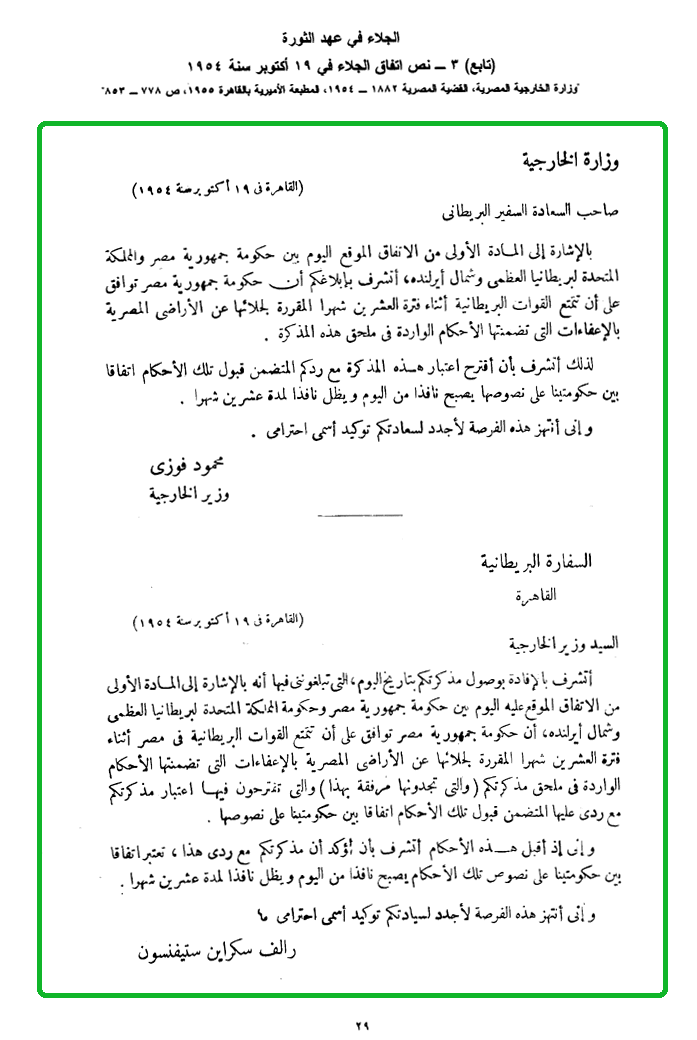 الجلاء في عهد الثورة
(تابع) ٣ ــ نص اتفاق الجلاء في ١٩ أكتوبر سنة ١٩٥٤
"وزارة الخارجية المصرية، القضية المصرية ١٨٨٢ ــ ١٩٥٤، المطبعة الأميرية بالقاهرة ١٩٥٥، ص ٧٧٨ ــ ٨٥٣"
وزارة الخارجية
(القاهرة فى ١٩ أكتوبر سنة ١٩٥٤)
صاحب السعادة السفير البريطانى
بالإشارة إلى المادة الأولى من الاتفاق الموقع اليوم بين حكومة جمهورية مصر والمملكة
المتحدة لبريطانيا العظمى وشمال أيرلنده، أتشرف بإبلاغكم أن حكومة جمهورية مصر توافق
على أن تتمتع القوات البريطانية أثناء فترة العشرين شهرا المقررة لجلائها عن الأراضى المصرية
بالإعفاءات التى تضمنتها الأحكام الواردة فى ملحق هذه المذكرة .
لذلك أتشرف بأن أقترح اعتبار هــذه المذكرة مع ردكم المتضمن قبول تلك الأحكام اتفاقا
بين حكومتينا على نصوصها يصبح نافذا من اليوم ويظل نافذا لمدة عشرين شهرا .
وإنى أنتهز هذه الفرصة لأجدد لسعادتكم توكيد أسمى احترامى .
محمود فوزى
وزير الخارجية
السفارة البريطانية
القاهرة
(القاهرة فى ١٩ أكتوبر سنة ١٩٥٤)
السيد وزير الخارجية
أتشرف بالإفادة بوصول مذكرتكم بتاريخ اليوم، التى تبلغوننى فيها أنه بالإشارة إلى المادة الأولى
من الاتفاق الموقع عليه اليوم بين حكومة جمهورية مصر وحكومة المملكة المتحدة لبريطانيا العظمى
وشمال أيرلنده، أن حكومة جمهورية مصر توافق على أن تتمتع القوات البريطانية فى مصر أثناء
فترة العشرين شهرا المقررة لجلائها عن الأراضى المصرية بالإعفاءات التى تضمنتها الأحكام
الواردة فى ملحق مذكرتكم (والتى تجدونها مرفقة بهذا) والتى تقترحون فيهــا اعتبار مذكرتكم
مع ردى عليها المتضمن قبول تلك الأحكام اتفاقا بين حكومتينا على نصوصها .
وإنى إذ أقبل هــذه الأحكام أتشرف بأن أؤكد أن مذكرتكم مع ردى هذا، تعتبر اتفاقا
بين حكومتينا على نصوص تلك الأحكام يصبح نافذا من اليوم ويظل نافذا لمدة عشرين شهرا .
وإنى أنتهز هذه الفرصة لأجدد لسيادتكم توكيد أسمى احترامى
رالف سكراين ستيفنسون
٢٩